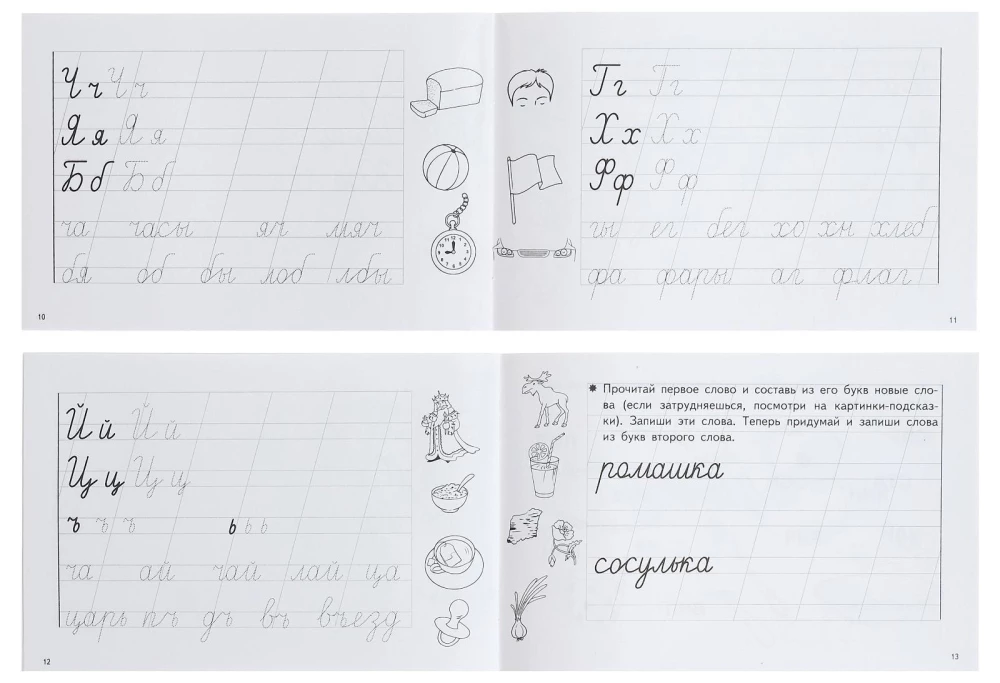 Ч ч Ч ч
Я я Я я
Б б Б б
ча часы яч мяч
бя об бы лоб лбы
10
Г г Г г
Х х Х х
Ф ф Ф ф
гы ег бег хо хн хлеб
фа фары аг флаг
11
Й й Й й
Ц ц Ц ц
ъ ъ ъ ь ь ь
ча ай чай лай ца
царь пъ дъ въ въезд
12
✸ Прочитай первое слово и составь из его букв новые сло-
ва (если затрудняешься, посмотри на картинки-подсказ-
ки). Запиши эти слова. Теперь придумай и запиши слова
из букв второго слова.
ромашка
сосулька
13